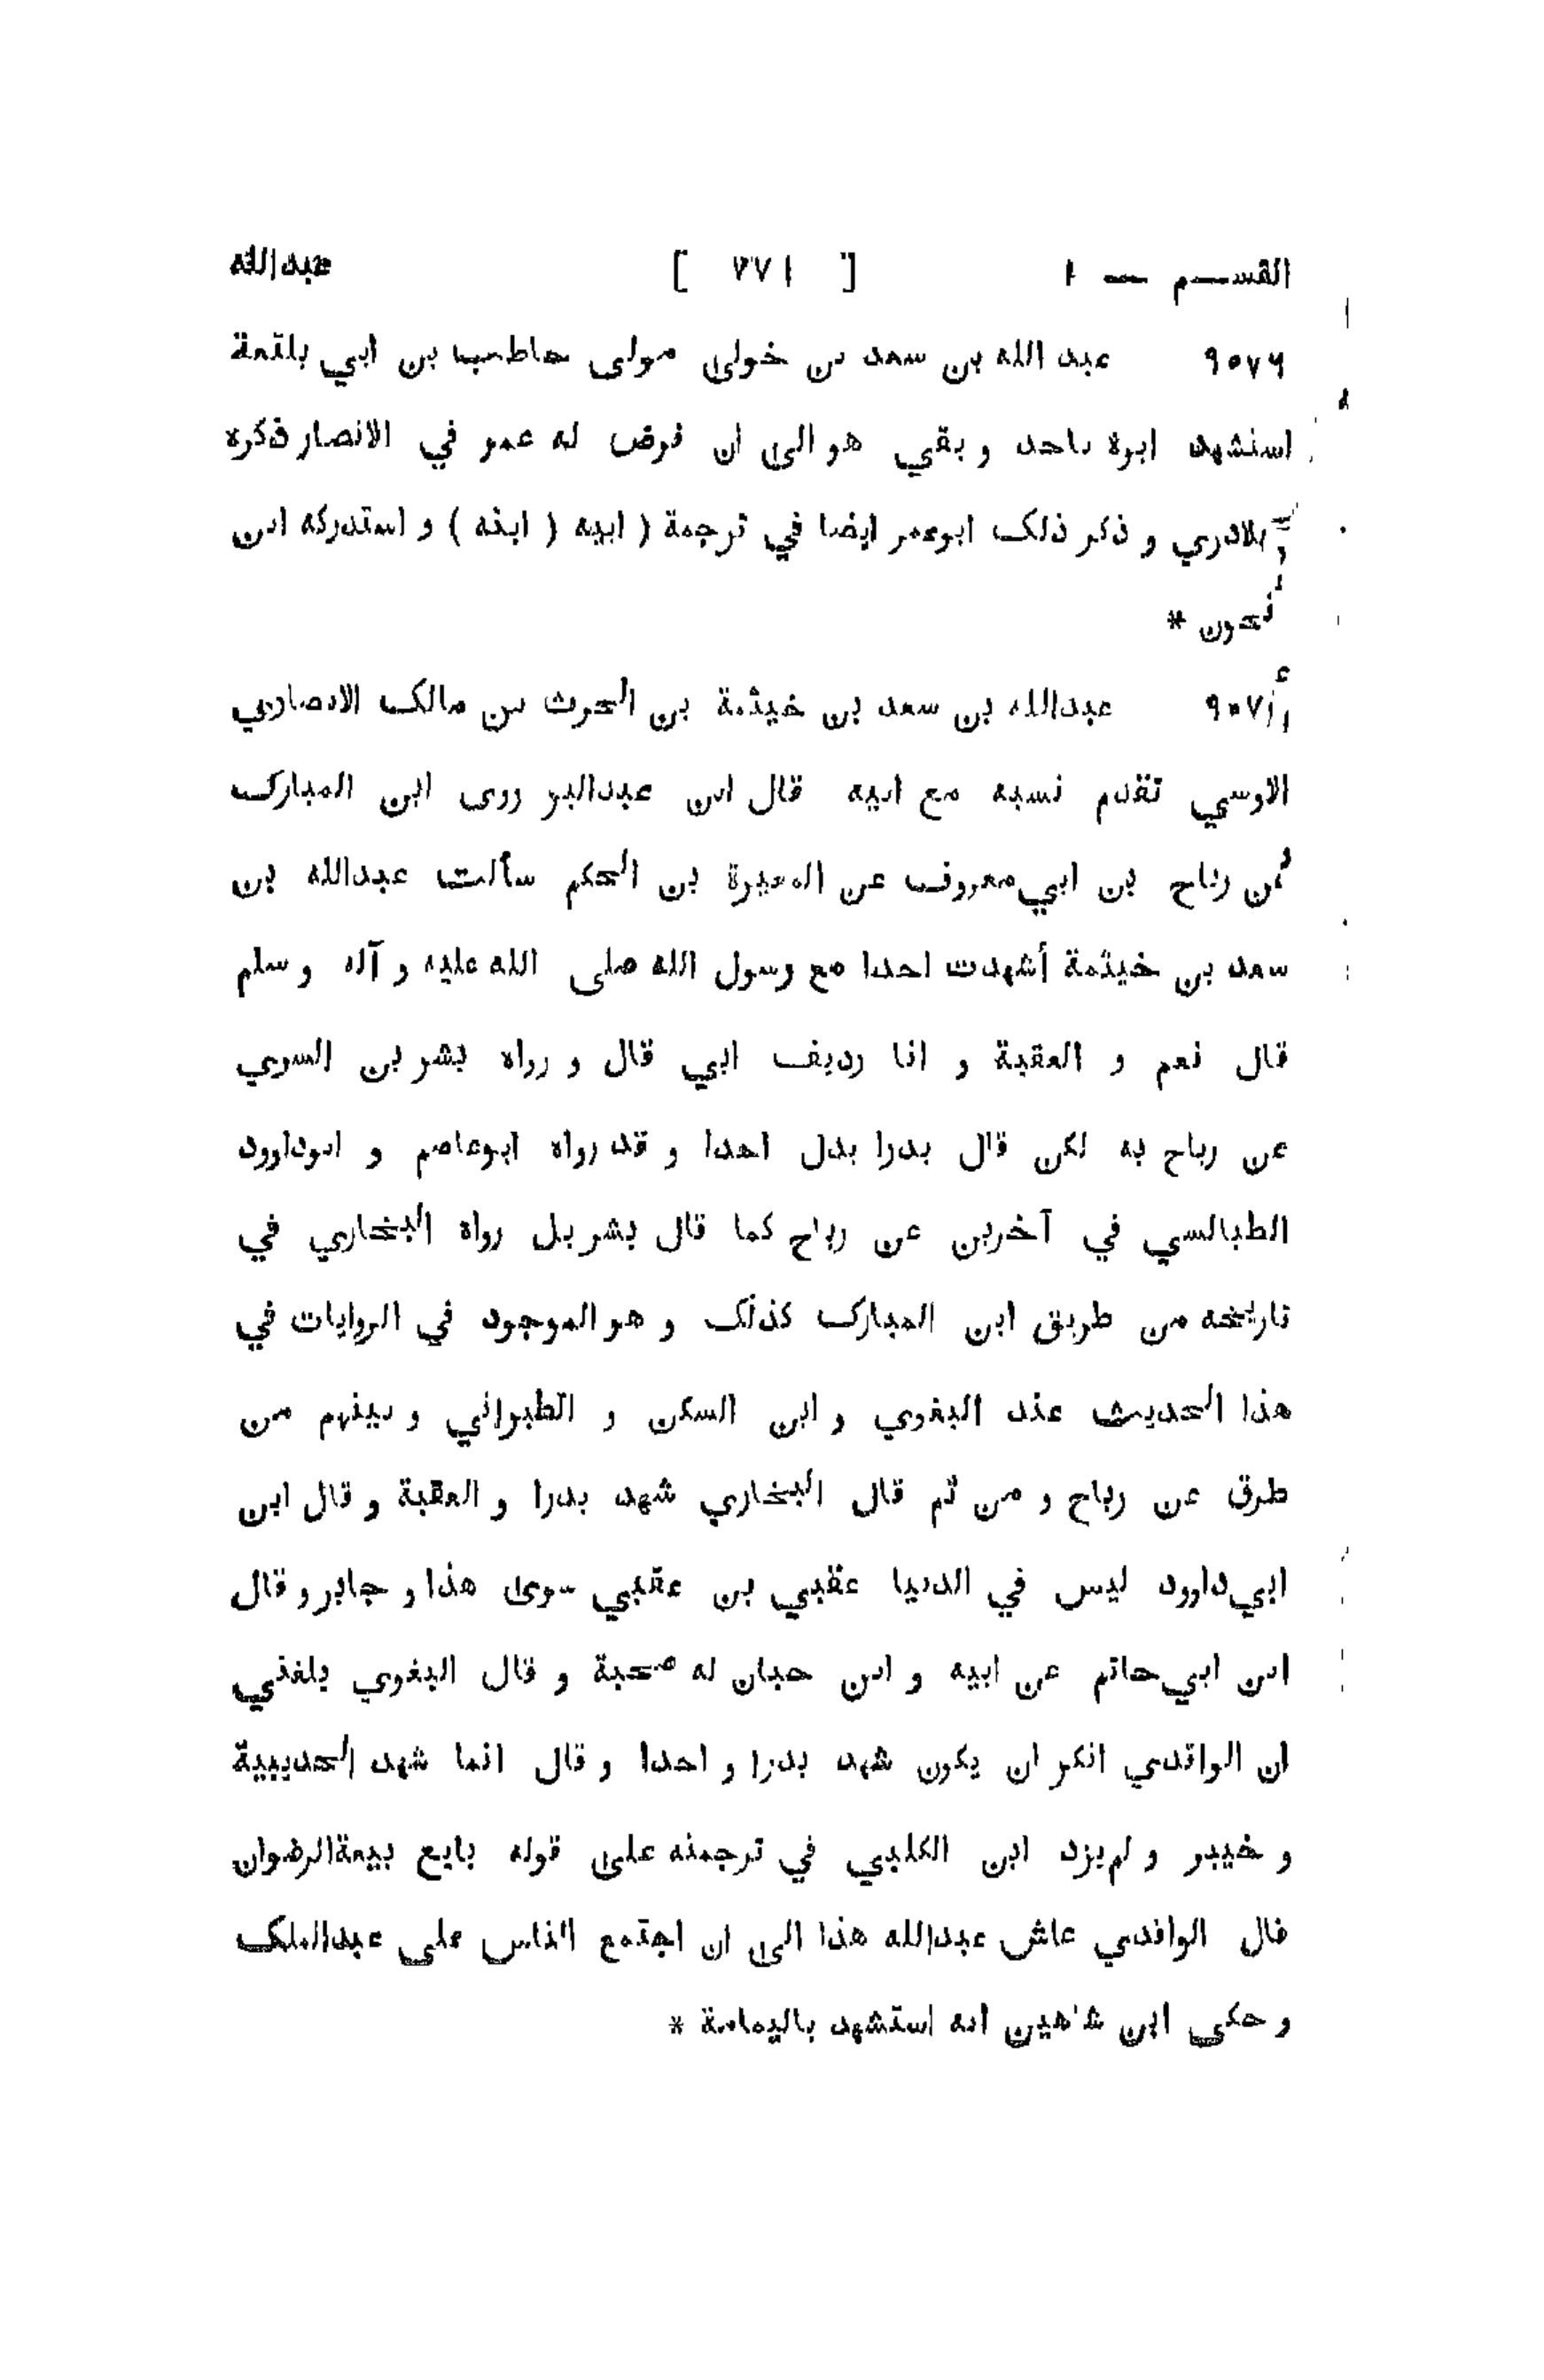 القسم — ١ [ ٧٧١ ] عبدالله
٩٥٧٦ عبد الله بن سعد بن خولى مولى حاطب بن ابي بلتعة
استشهد ابوه باحد و بقي هو الى ان فرض له عمر في الانصار ذكره
البلاذري و ذكر ذلک ابوعمر ايضا في ترجمة ( ابيه ( ابنه ) و استدركه ابن
فتحون *
عبدالله بن سعد بن خيثمة بن الحرث بن مالک الانصاري
الاوسي تقدم نسبه مع ابيه قال ابن عبدالبر روى ابن المبارک
عن رباح بن ابي معروف عن المغيرة بن الحكم سألت عبدالله بن
سعد بن خيثمة أشهدت احدا مع رسول الله صلى الله عليه و آله و سلم
قال نعم و العقبة و انا رديف ابي قال و رواه بشر بن السري
عن رباح به لكن قال بدرا بدل احدا و قد رواه ابوعاصم و ابوداوود
الطيالسي في آخرين عن رباح كما قال بشر بل رواه البخاري في
تاريخه من طريق ابن المبارک كذلک و هو الموجود في الروايات في
هذا الحديث عند البغوي و ابن السكن و الطبراني و بينهم من
طرق عن رباح و من ثم قال البخاري شهد بدرا و العقبة و قال ابن
ابي داوود ليس في الدنيا عقبي بن عقبي سوى هذا و جابر و قال
ابن ابي حاتم عن ابيه و ابن حبان له صحبة و قال البغوي بلغني
ان الواقدي انكر ان يكون شهد بدرا و احدا و قال انما شهد الحديبية
و خيبر و لم يزد ابن الكلبي في ترجمته على قوله بايع بيعة الرضوان
قال الواقدي عاش عبدالله هذا الى ان اجتمع الناس على عبدالملک
و حكى ابن شاهين انه استشهد باليمامة *